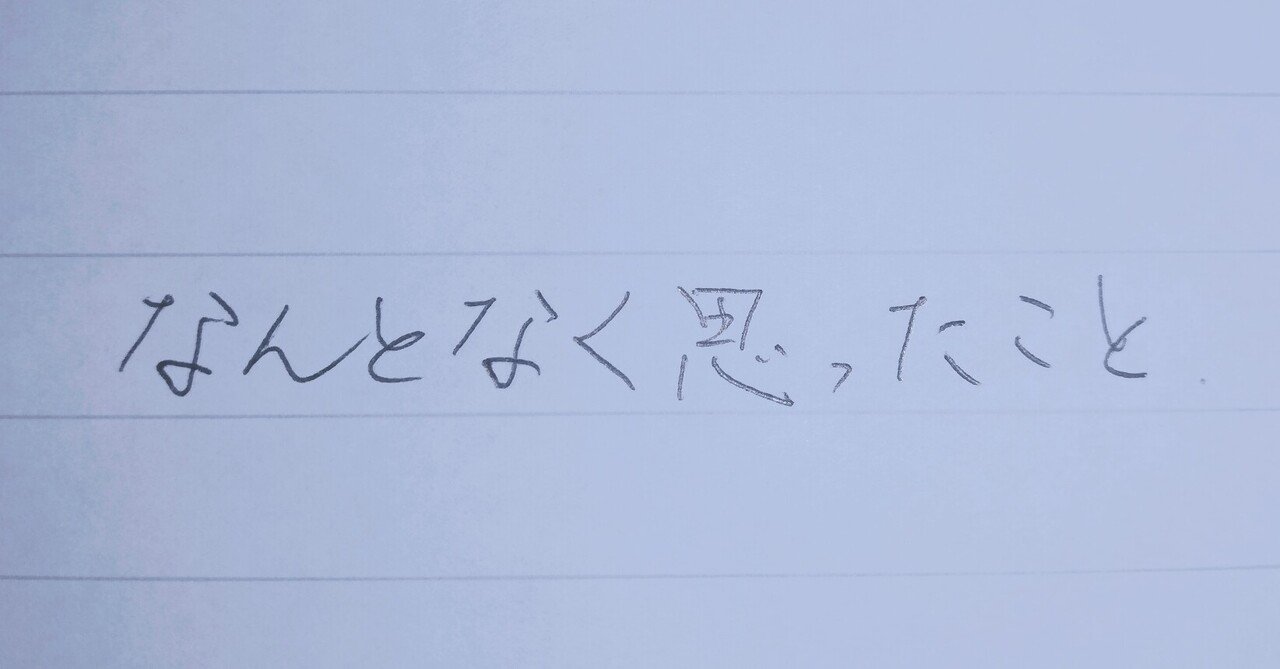 なんとなく思ったこと